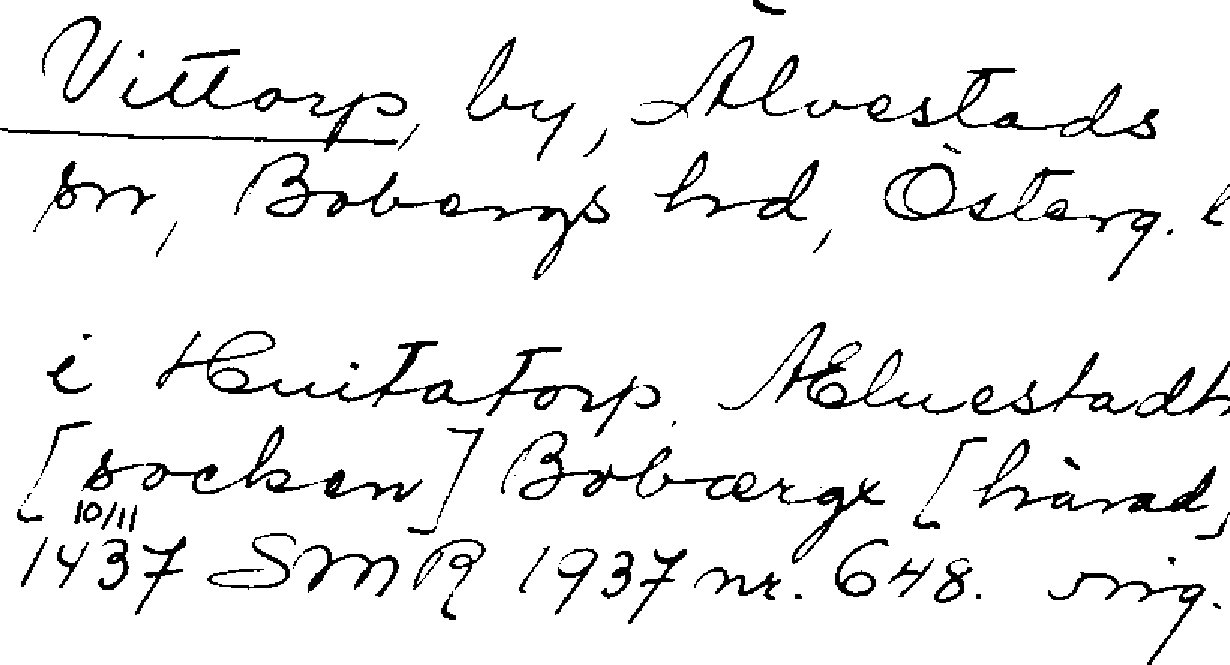 Vittorp, by, Älvestads
sn, Bobergs hrd, Österg. l
i Huitatorp. Æluestadh
[socken] Bobærgx [härad]
10/11
1437 SMR 1937 nr. 648. orig.